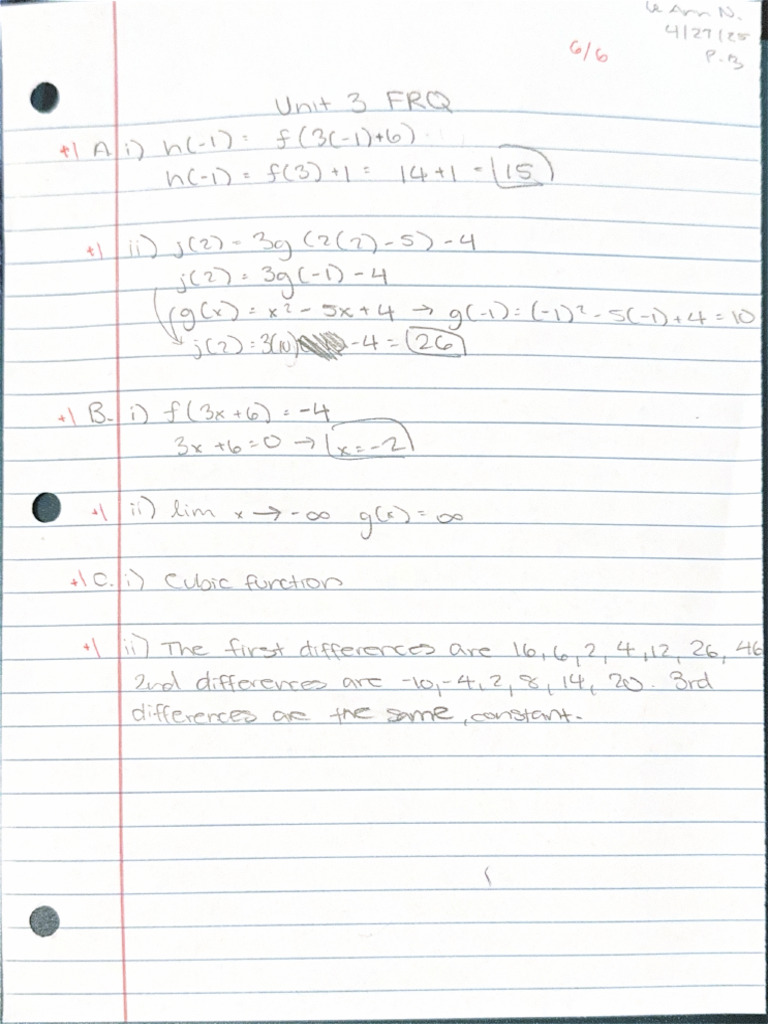 Le Ann N.
4/27/25
P.3
6/6
Unit 3 FRQ
+1 A i) h(-1) = f(3(-1)+6)
h(-1) = f(3)+1 = 14+1 = 15
+1 ii) j(2) = 3g (2(2)-5)-4
j(2) = 3g(-1)-4
g(x) = x² - 5x+4 → g(-1) = (-1)² -5(-1)+4 = 10
j(2) = 3(10) -4 = 26
+1 B. i) f(3x+6) = -4
3x+6=0 → x=-2
+1 ii) lim x → -∞ g(x) = ∞
+1 C. i) Cubic function
+1 ii) The first differences are 16, 6, 2, 4, 12, 26, 46
2nd differences are -10, -4, 2, 8, 14, 20. 3rd
differences are the same, constant.